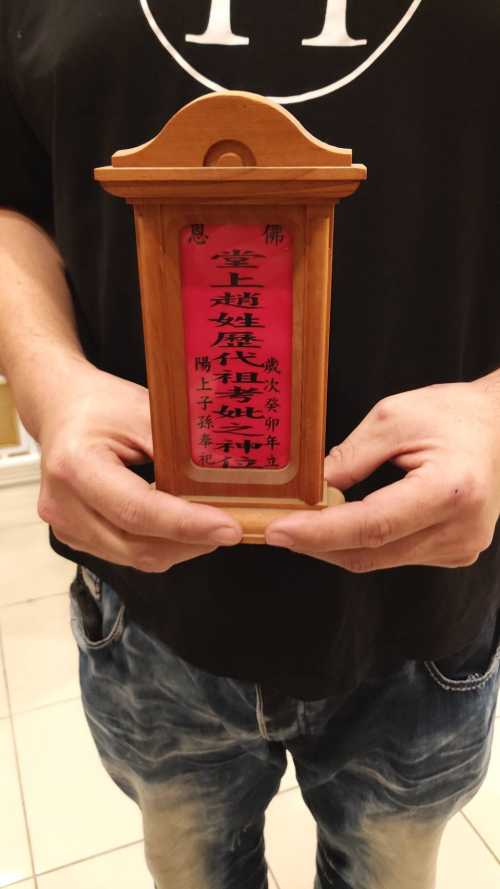 佛恩
歲次癸卯年立
堂上趙姓歷代祖考妣之神位
陽上子孫奉祀